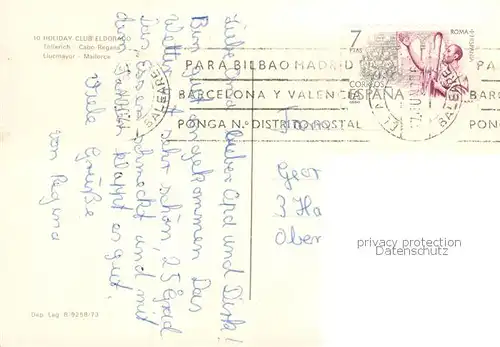 10 HOLIDAY CLUB ELDORADO
Tollerich - Cabo Regana
Llucmayor - Mallorca
7
PTAS
ROMA
HISPANIA
CORREOS
ESPAÑA
PARA BILBAO MADRID
BARCELONA Y VALENCIA
PONGA N.º DISTRITO POSTAL
PARA
BARC
PONGA
BALEARES
und Dirk!
Bin gut angekommen. Das
Wetter ist sehr schön 25 Grad
das Essen schmeckt und mit
klappt es gut.
Viele Grüße
von Regina
Geor
3 Ha
Ober
privacy protection
watermark
Dep. Leg. B-9258-73